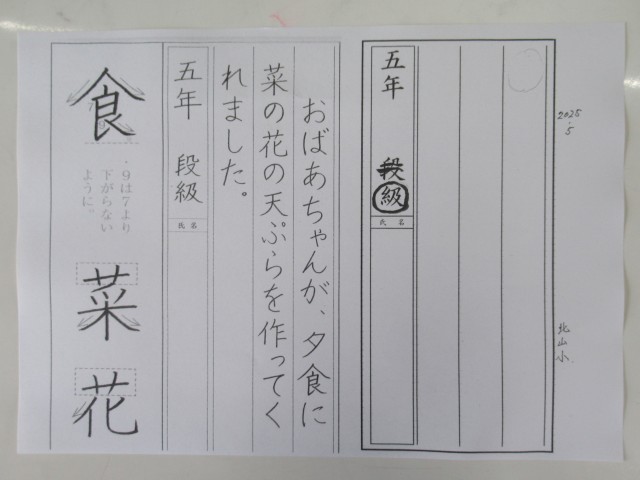 2025.5
北山小
五年 段級
氏名
おばあちゃんが、夕食に
菜の花の天ぷらを作ってく
れました。
五年 段級
氏名
食
・9は7より
下がらない
ように。
菜
花